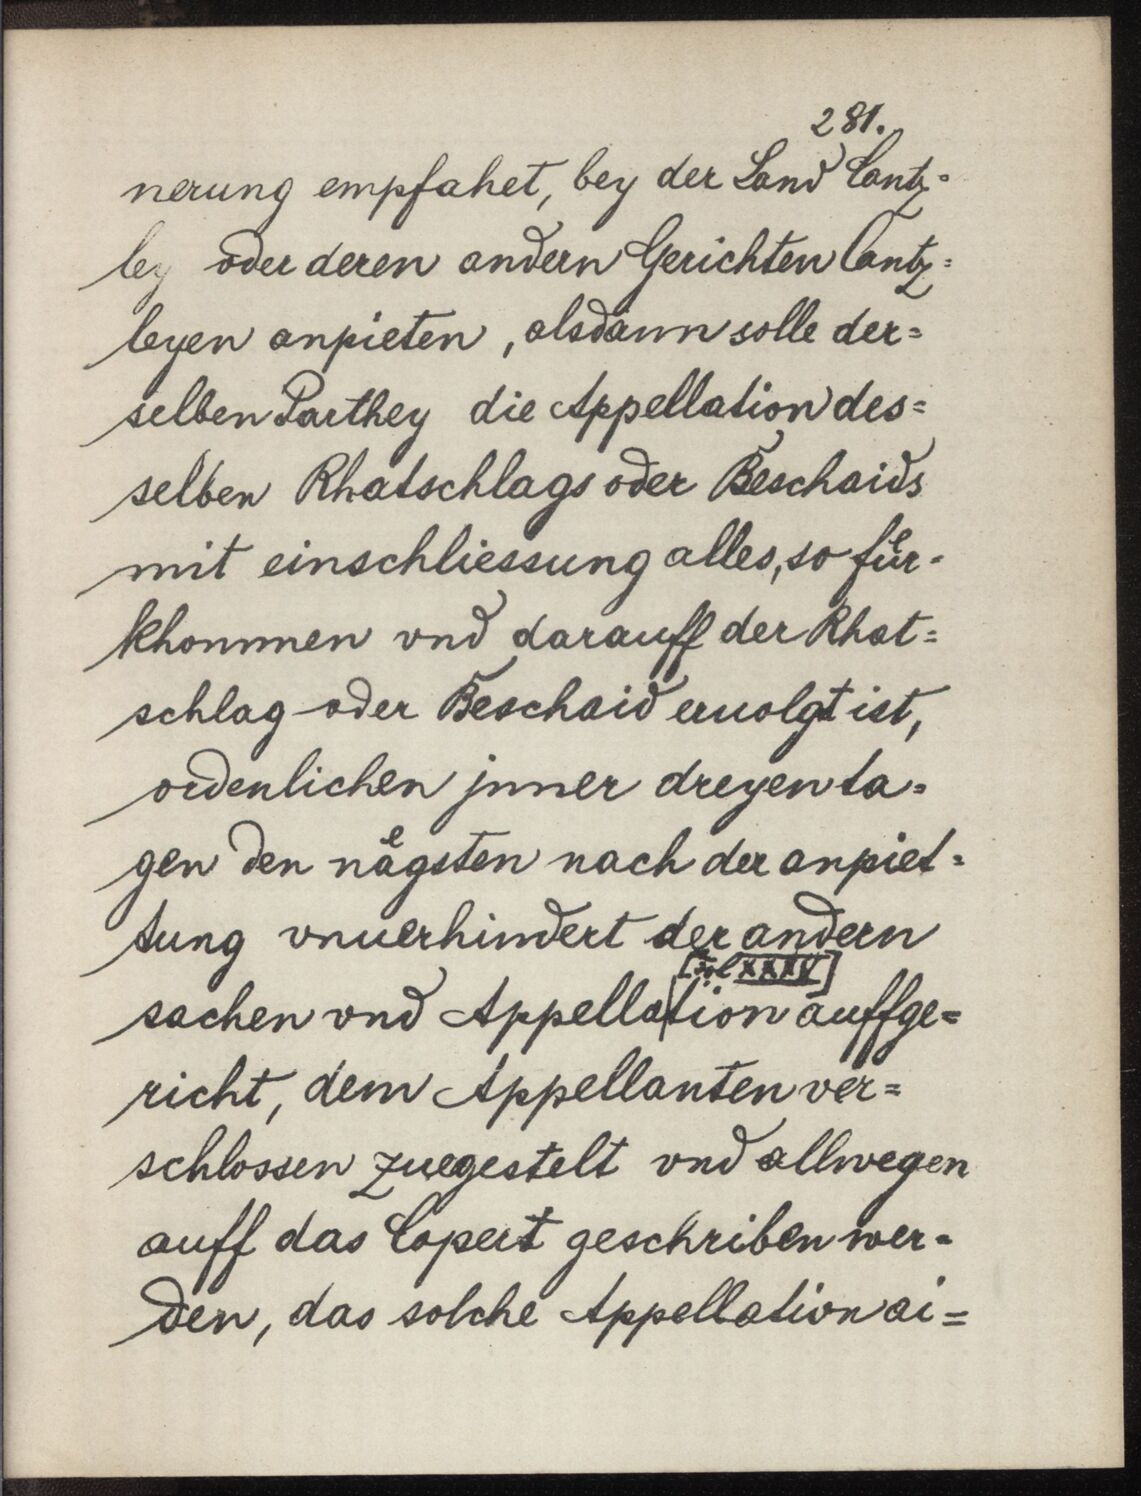 281.
nerung empfahet, bey der Land Cantz-
ley oder deren andern Gerichten Cantz=
leyen anpieten, alsdann solle der=
selben Parthey die Appellation des=
selben Rhatschlags oder Beschaids
mit einschliessung alles, so fuͤr-
khommen vnd darauff der Rhat=
schlag oder Beschaid eruolgt ist,
ordenlichen jnner dreyen ta=
gen den naͤgsten nach der anpiet=
tung vnuerhindert der andern
[Fol XXXV]
sachen vnd Appella|tion auffge=
richt, dem Appellanten ver=
schlossen zuegestelt vnd allwegen
auff das Copert geschriben wer=
den, das solche Appellation ai=